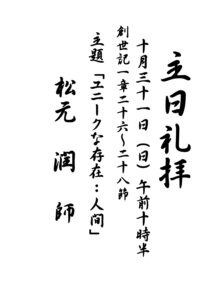 主日礼拝
十月三十一日（日）午前十時半
創世記一章二十六～二十八節
主題「ユニークな存在：人間」
松元 潤 師